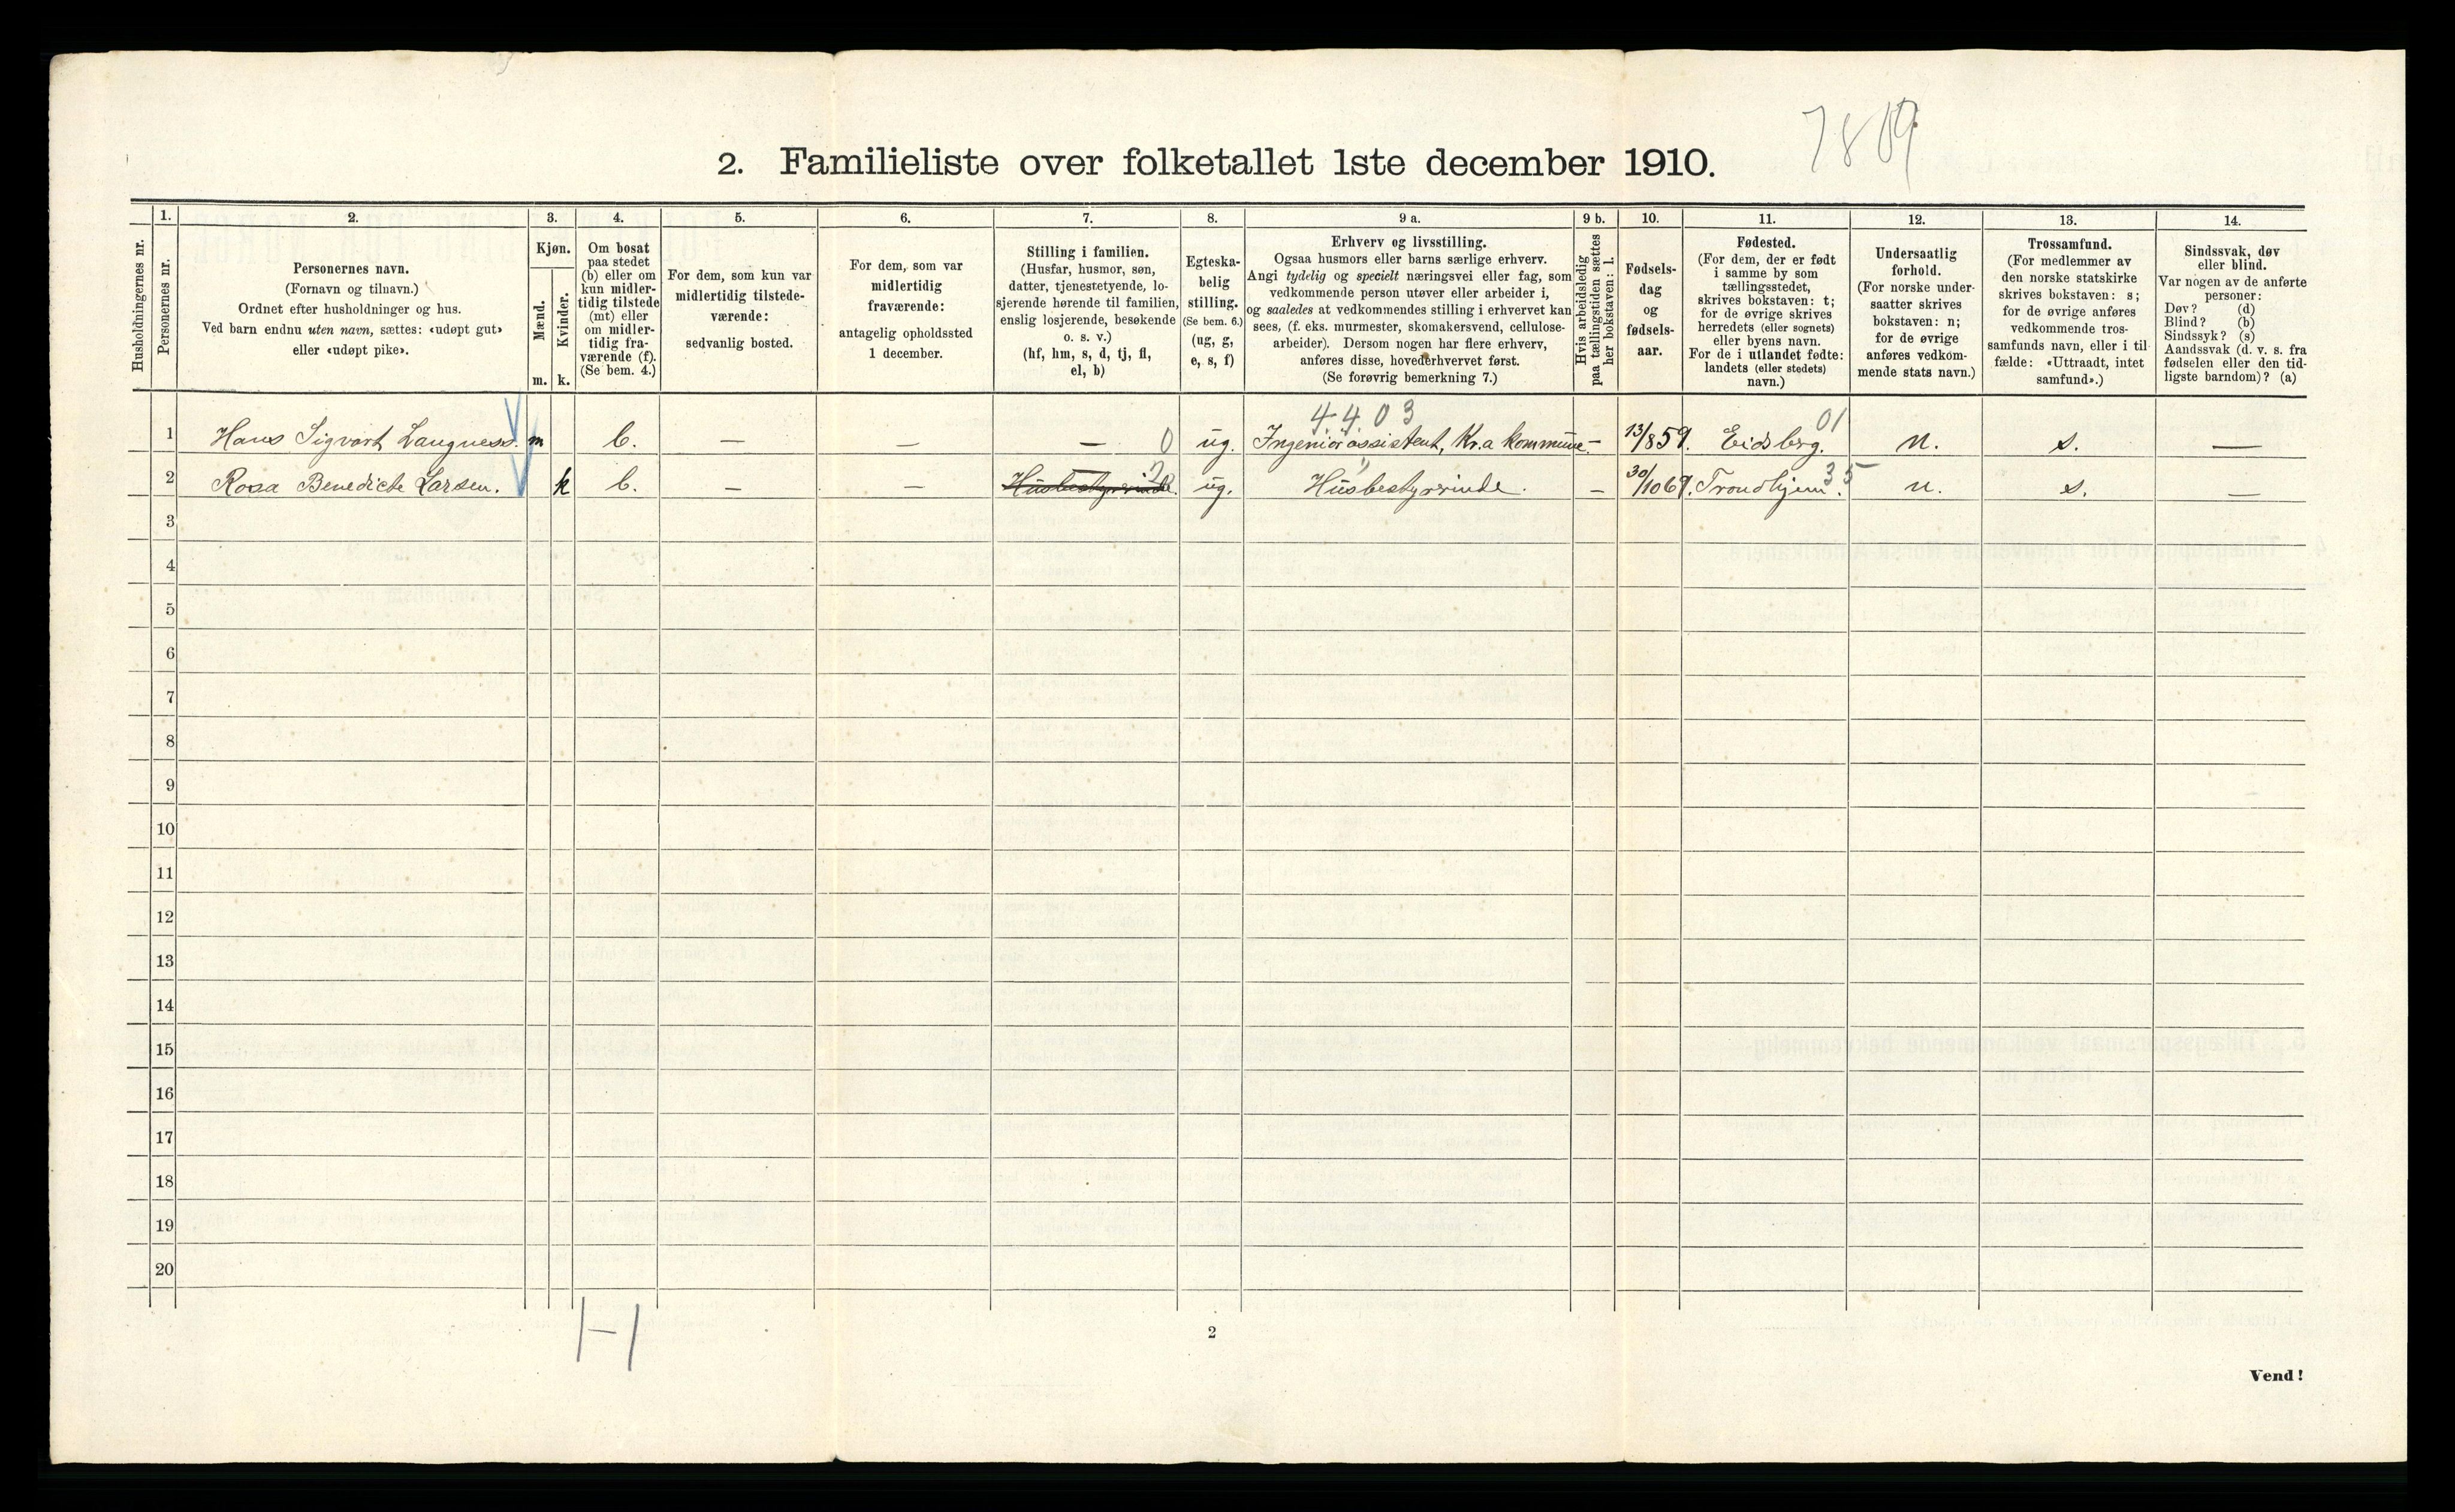 7809
2. Familieliste over folketallet 1ste december 1910.
Husholdningernes nr.
1.
Personernes nr.
2.
Personernes navn.
(Fornavn og tilnavn.)
Ordnet efter husholdninger og hus.
Ved barn endnu uten navn, sættes: «udøpt gut»
eller «udøpt pike».
3.
Kjøn.
Mænd.
Kvinder.
m. k.
4.
Om bosat
paa stedet
(b) eller om
kun midler-
tidig tilstede
(mt) eller
om midler-
tidig fra-
værende (f).
(Se bem. 4.)
5.
For dem, som kun var
midlertidig tilstede-
værende:
sedvanlig bosted.
6.
For dem, som var
midlertidig
fraværende:
antagelig opholdssted
1 december.
7.
Stilling i familien.
(Husfar, husmor, søn,
datter, tjenestetyende, lo-
sjerende hørende til familien,
enslig losjerende, besøkende
o. s. v.)
(hf, hm, s, d, tj, fl,
el, b)
8.
Egteska-
belig
stilling.
(Se bem. 6.)
(ug, g,
e, s, f)
9 a.
Erhverv og livsstilling.
Ogsaa husmors eller barns særlige erhverv.
Angi tydelig og specielt næringsvei eller fag, som
vedkommende person utøver eller arbeider i,
og saaledes at vedkommendes stilling i erhvervet kan
sees, (f. eks. murmester, skomakersvend, cellulose-
arbeider). Dersom nogen har flere erhverv,
anføres disse, hovederhvervet først.
(Se forøvrig bemerkning 7.)
9 b.
Hvis arbeidsledig
paa tællingstiden sættes
her bokstaven: l.
10.
Fødsels-
dag
og
fødsels-
aar.
11.
Fødested.
(For dem, der er født
i samme by som
tællingsstedet,
skrives bokstaven: t;
for de øvrige skrives
herredets (eller sognets)
eller byens navn.
For de i utlandet fødte:
landets (eller stedets)
navn.)
12.
Undersaatlig
forhold.
(For norske under-
saatter skrives
bokstaven: n;
for de øvrige
anføres vedkom-
mende stats navn.)
13.
Trossamfund.
(For medlemmer av
den norske statskirke
skrives bokstaven: s;
for de øvrige anføres
vedkommende tros-
samfunds navn, eller i til-
fælde: «Uttraadt, intet
samfund».)
14.
Sindssvak, døv
eller blind.
Var nogen av de anførte
personer:
Døv? (d)
Blind? (b)
Sindssyk? (s)
Aandssvak (d. v. s. fra
fødselen eller den tid-
ligste barndom)? (a)
4403 01
1 Hans Sigvart Langness. m b. — — — 0 ug. Ingeniørassistent, Kr.a kommune — 13/8 59. Eidsberg. n. s. —
2 Rosa Benedicte Larsen. k b. — — Husbestyrerinde. ug. Husbestyrerinde. — 30/10 69. Trondhjem. 35 n. s. —
3
4
5
6
7
8
9
10
11
12
13
14
15
16
17
18
19
20
1-1
2
Vend!